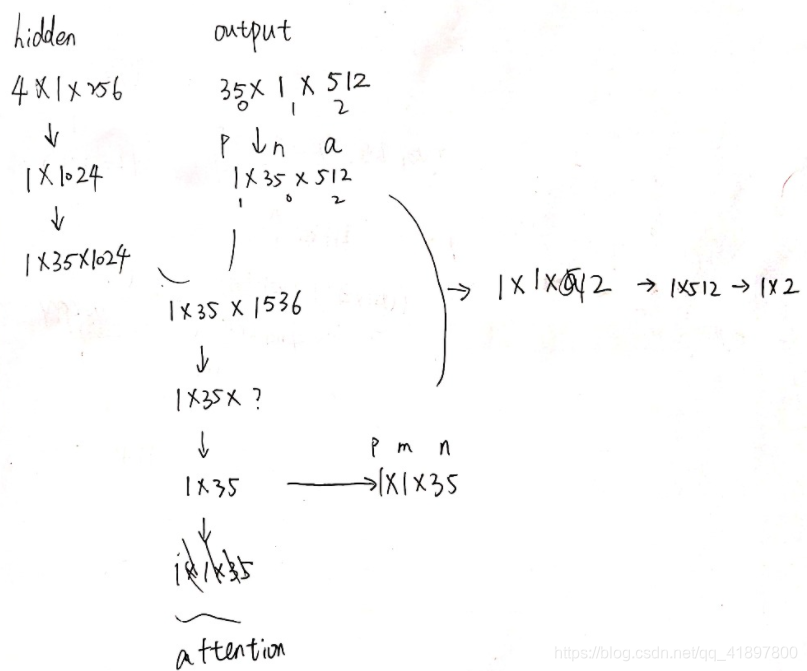 hidden
4×1×256
↓
1×1024
↓
1×35×1024
output
35×1×512
0 1 2
p ↓ n a
1×35×512
1 0 2
1×35×1536
↓
1×35×?
↓
1×35
↓
1×1×35
attention
p m n
→1×1×35
→ 1×1×512 → 1×512 → 1×2
https://blog.csdn.net/qq_41897800